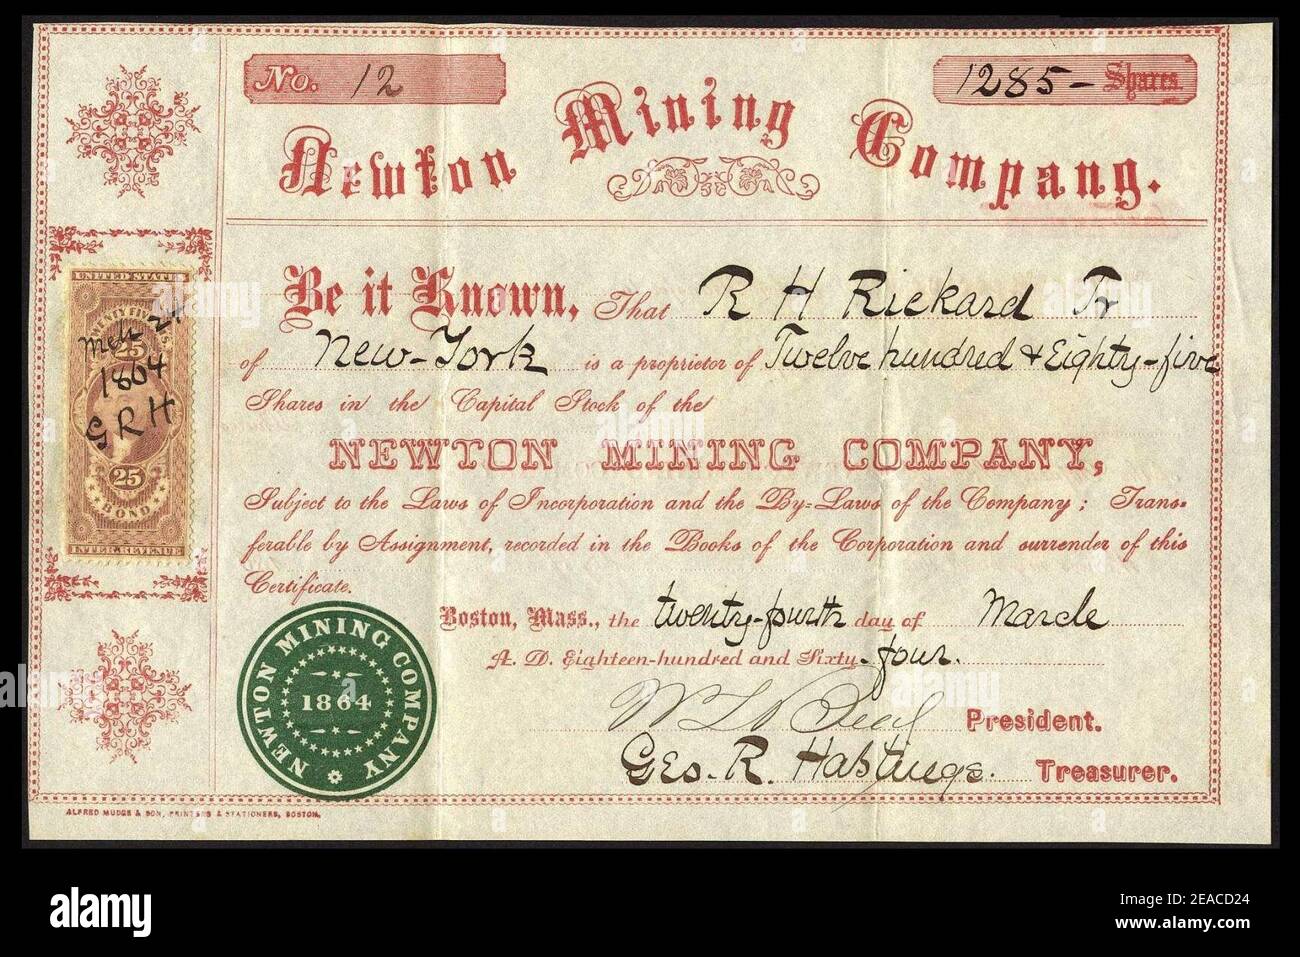 No. 12
1285- Shares.
Newton Mining Company.
Be it Known, That R H Rickard Tr
of New-York is a proprietor of Twelve hundred & Eighty-five
Shares in the Capital Stock of the
NEWTON MINING COMPANY,
Subject to the Laws of Incorporation and the By-Laws of the Company; Trans-
ferable by Assignment, recorded in the Books of the Corporation and surrender of this
Certificate.
Boston, Mass., the twenty-fourth day of March
A. D. Eighteen-hundred and Sixty-four.
President.
Geo. R. Hastings. Treasurer.
UNITED STATES
TWENTY FIVE
25
Mch 24
1864
G R H
25
BOND
INTER. REVENUE
NEWTON MINING COMPANY
1864
ALFRED MUDGE & SON, PRINTERS & STATIONERS, BOSTON.
alamy
Image ID: 2EACD24
www.alamy.com